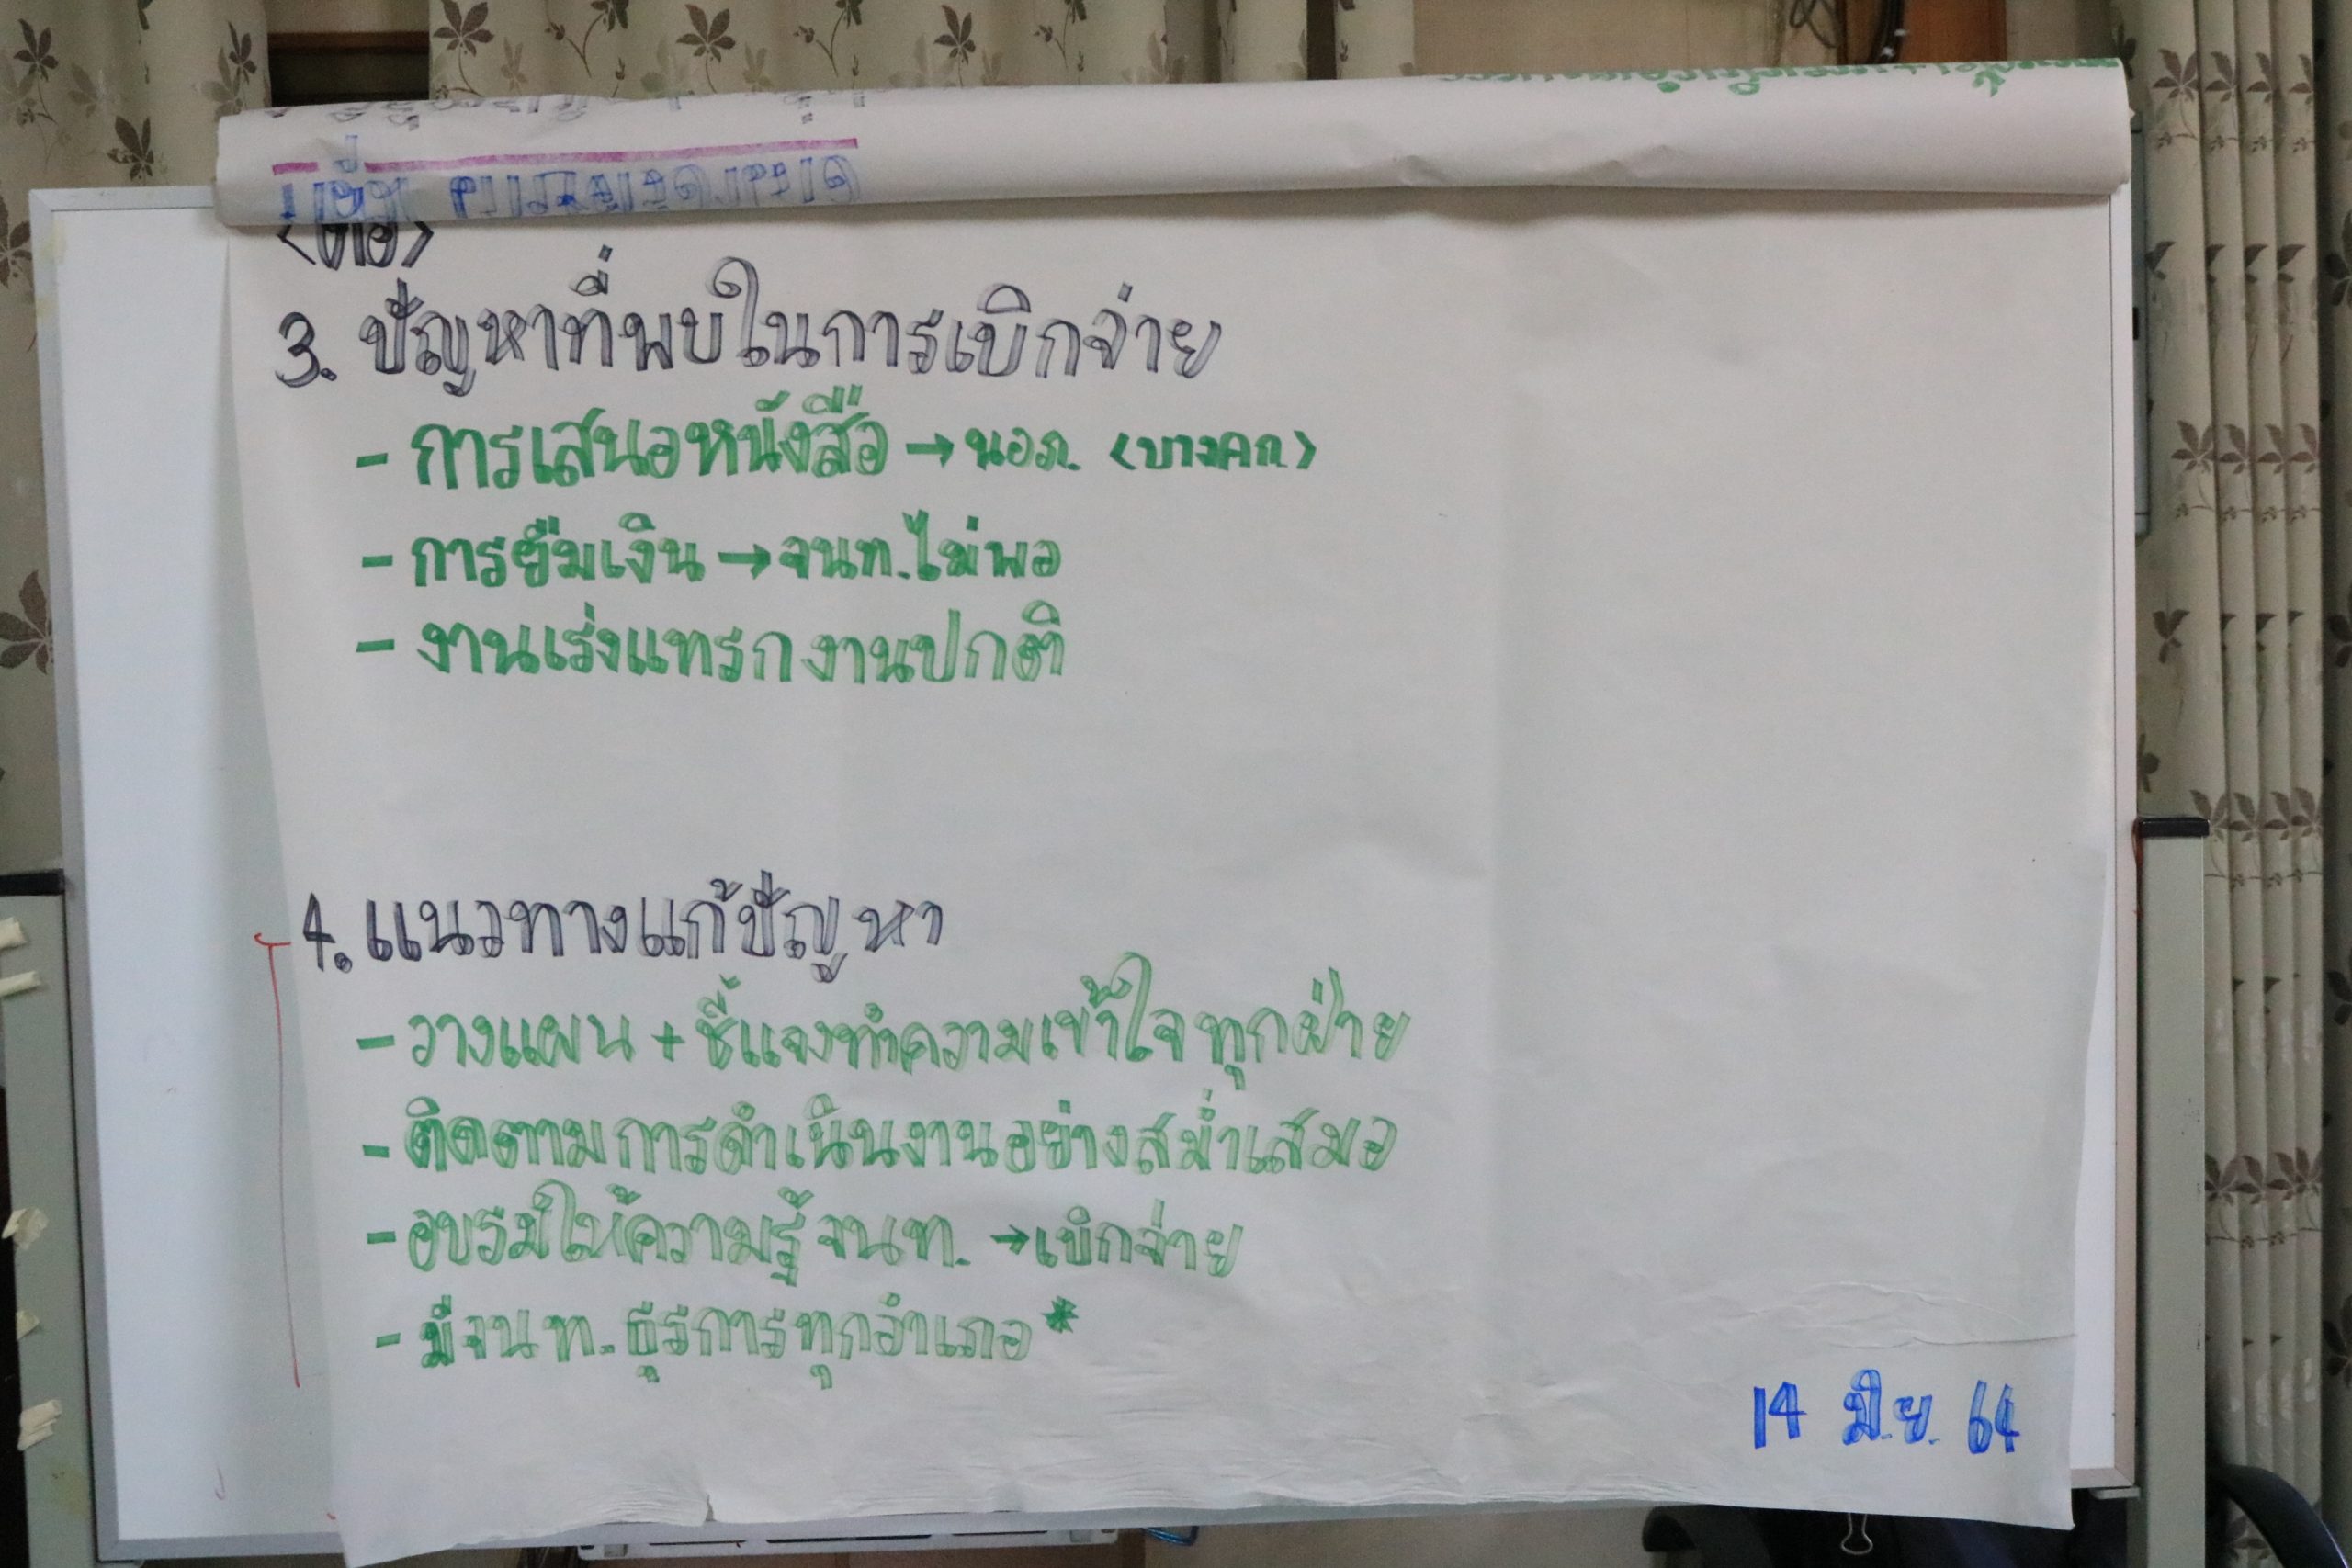 <ต่อ>
3. ปัญหาที่พบในการเบิกจ่าย
- การเสนอหนังสือ → นอภ. <บางคก.>
- การยืมเงิน → จนท.ไม่พอ
- งานเร่งแทรกงานปกติ
4. แนวทางแก้ปัญหา
- วางแผน + ชี้แจงทำความเข้าใจทุกฝ่าย
- ติดตามการดำเนินงานอย่างสม่ำเสมอ
- อบรมให้ความรู้ จนท. → เบิกจ่าย
- มีจนท. ธุรการทุกอำเภอ*
14 มิ.ย. 64